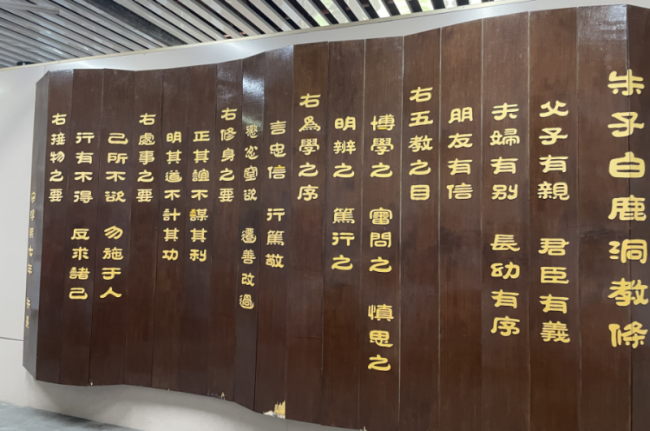 朱子白鹿洞教條
父子有親 君臣有義
夫婦有别 長幼有序
朋友有信
右五教之目
博學之 審問之 慎思之
明辨之 篤行之
右為學之序
言忠信 行篤敬
懲忿窒欲 遷善改過
右修身之要
正其誼不謀其利
明其道不計其功
右處事之要
己所不欲 勿施于人
行有不得 反求諸己
右接物之要